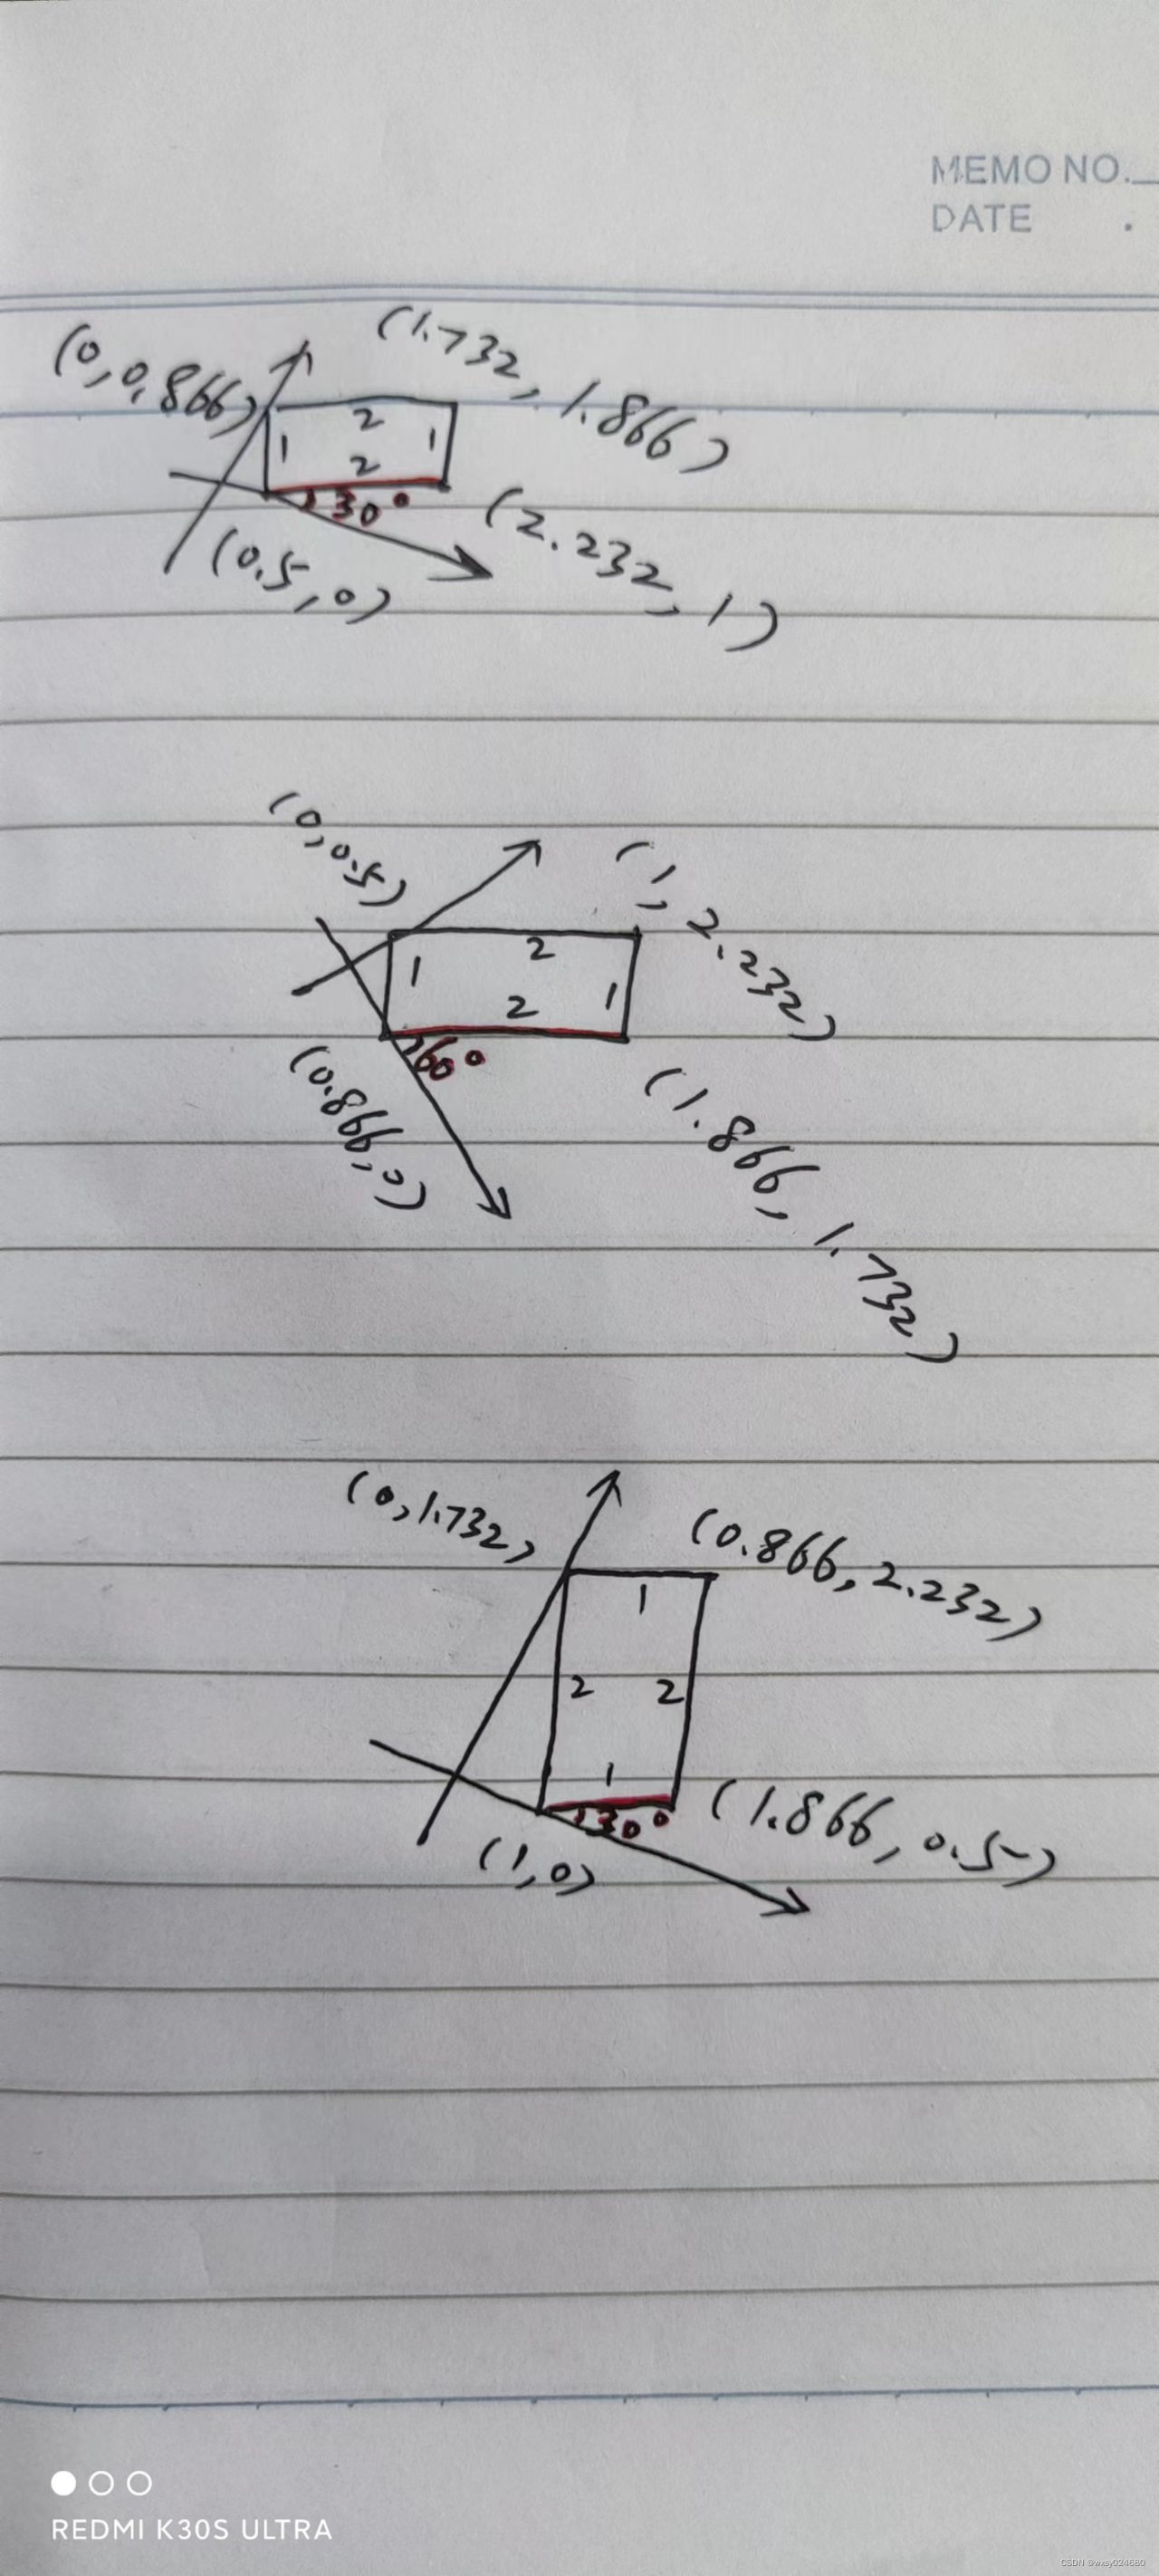 MEMO NO.
DATE .
(0,0.866)
(1.732, 1.866)
2
1
1
2
30°
(2.232, 1)
(0.5, 0)
(0, 0.5)
(1, 2.232)
2
1
1
2
60°
(0.866, 0)
(1.866, 1.732)
(0, 1.732)
(0.866, 2.232)
1
2
2
1
30°
(1.866, 0.5)
(1, 0)
REDMI K30S ULTRA
CSDN @wxsy024680